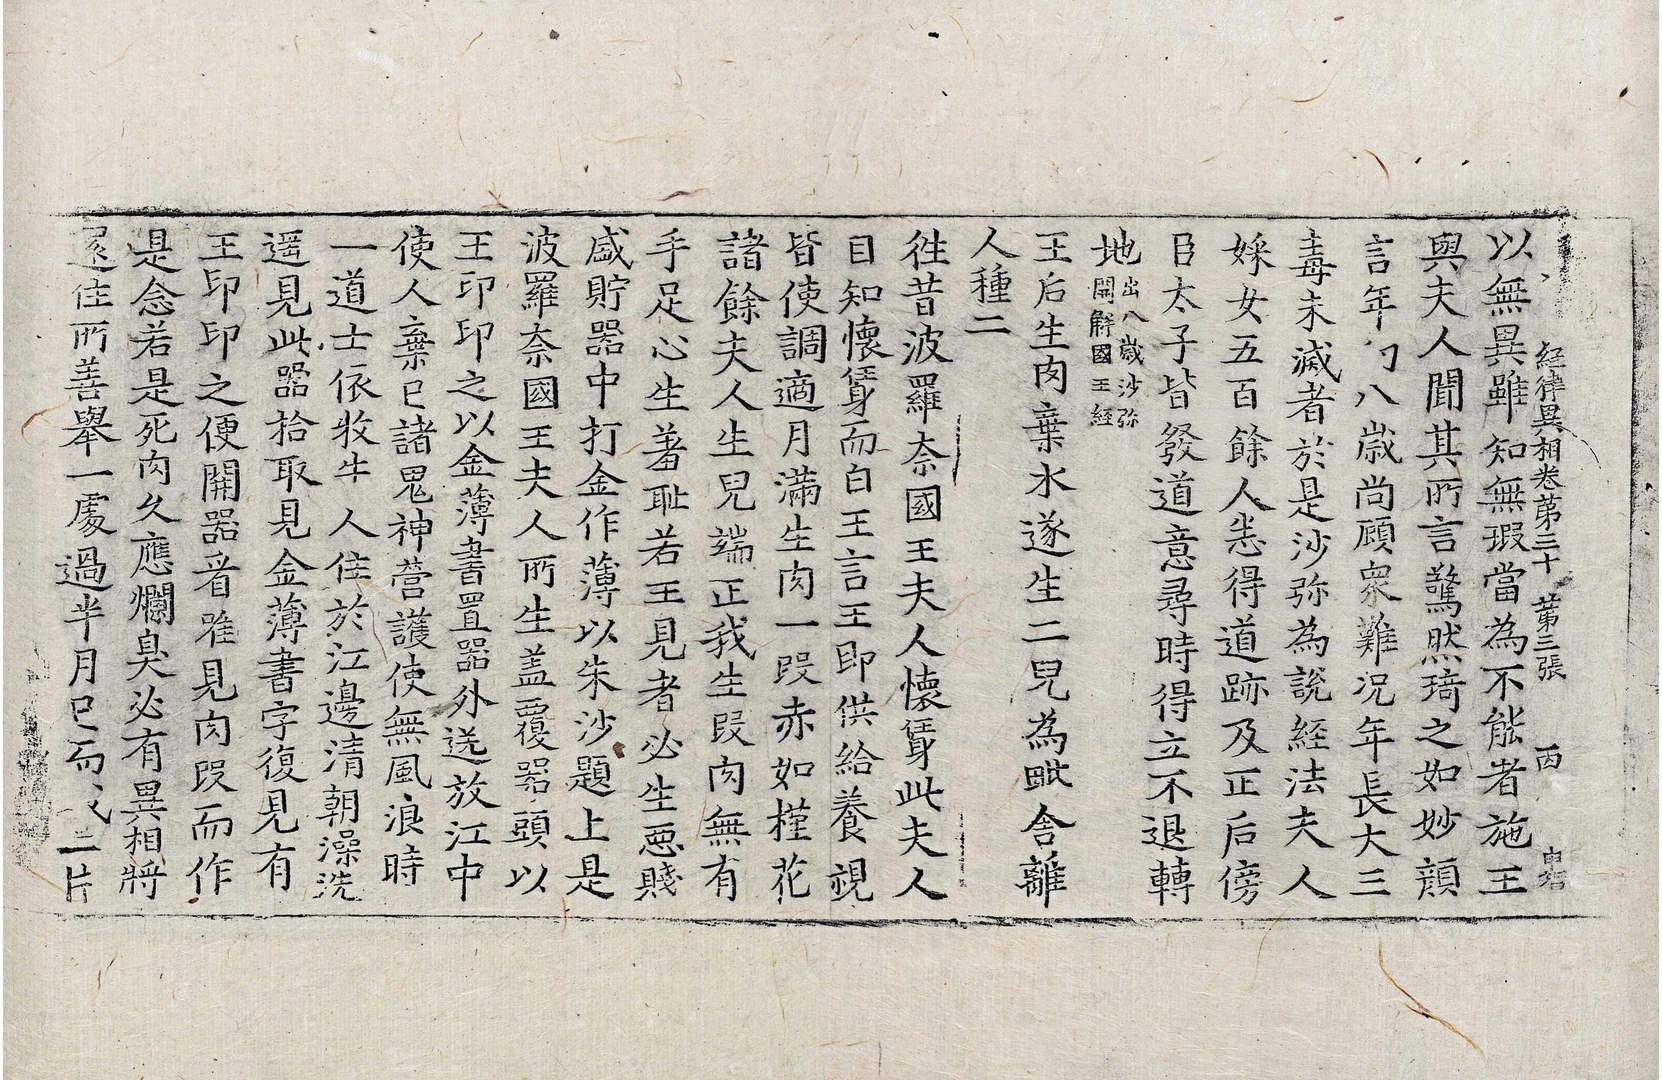 経律異相卷第三十 第三張 丙
以無異雖知無瑕當為不能者施王
與夫人聞其所言驚然琦之如妙顔
言年 八歲尚顧衆難況年長大三
毒未滅者於是沙弥為說経法夫人
婇女五百餘人悉得道跡及正后傍
臣太子皆發道意尋時得立不退轉
地出八歲沙弥
開解國王経
王后生肉棄水遂生二兒為毗舎離
人種二
往昔波羅奈國王夫人懷身此夫人
自知懷身而白王言王即供給養視
皆使調適月滿生肉一段赤如槿花
諸餘夫人生兒端正我生段肉無有
手足心生羞耻若王見者必生惡賤
盛貯器中打金作薄以朱沙題上是
波羅奈國王夫人所生盖覆器頭以
王印印之以金薄書置器外送放江中
使人棄已諸鬼神營護使無風浪時
一道士依牧牛人住於江邊清朝澡洗
遥見此器拾取見金薄書字復見有
王印印之便開器看唯見肉段而作
是念若是死肉久應爛臭必有異相將
還住所善舉一處過半月已而 二片